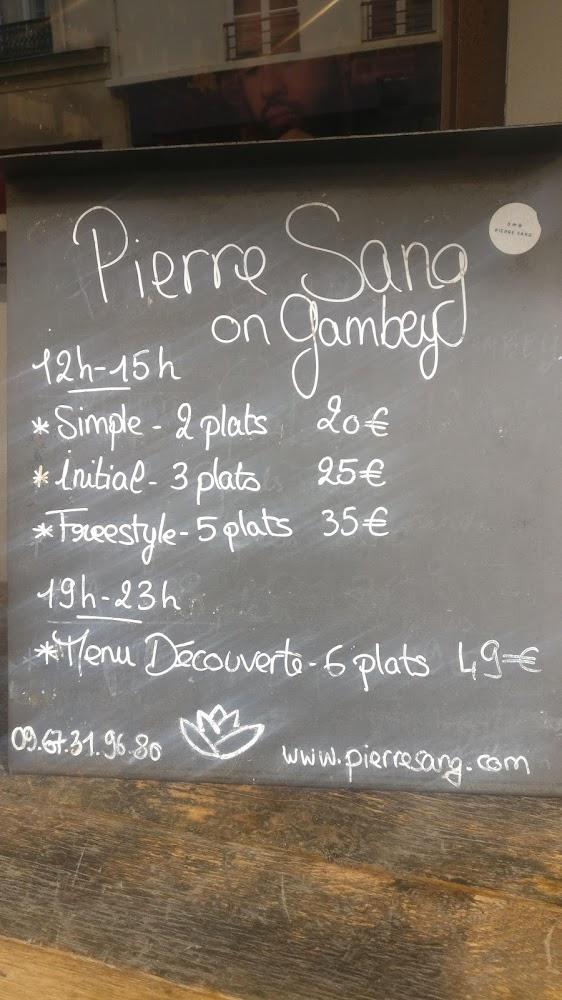 Pierre Sang
on Gambey
PIERRE SANG
12h-15h
* Simple - 2 plats 20€
* Initial - 3 plats 25€
* Freestyle - 5 plats 35€
19h-23h
* Menu Découverte - 6 plats 49€
09.67.31.96.80
www.pierresang.com